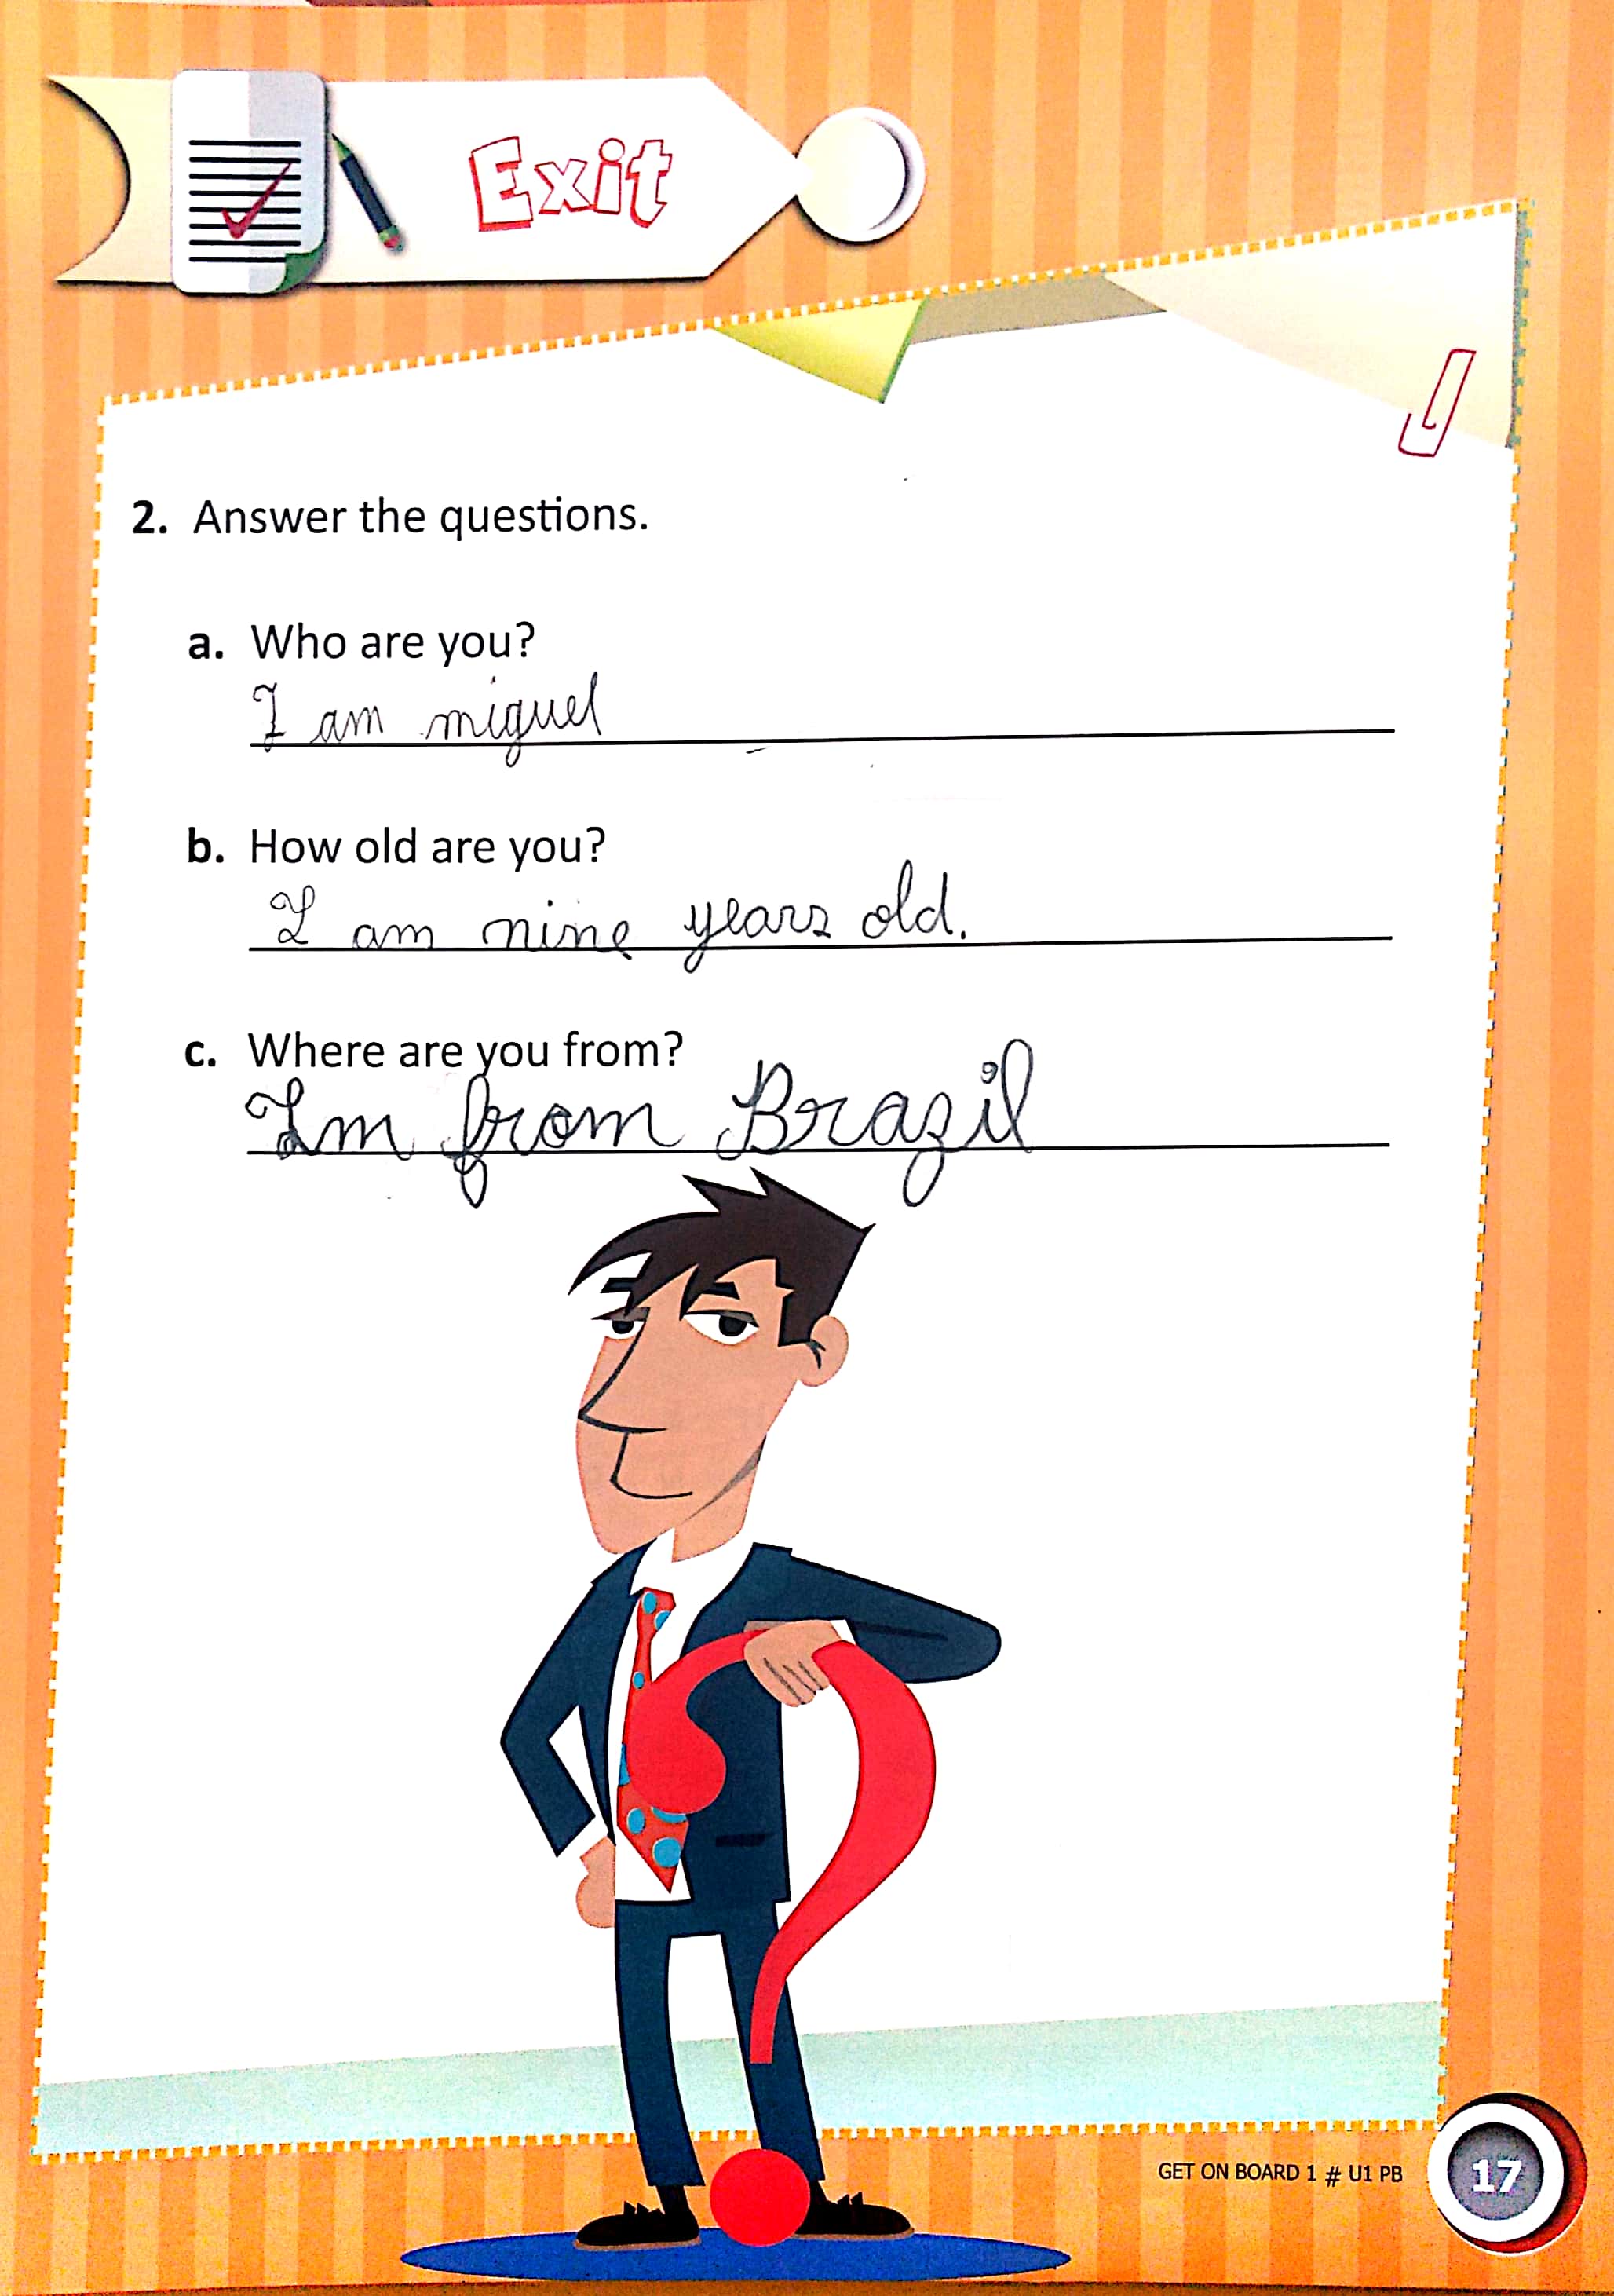 Exit
2. Answer the questions.
a. Who are you?
I am miguel
b. How old are you?
I am nine years old.
c. Where are you from?
Im from Brazil
GET ON BOARD 1 # U1 PB
17